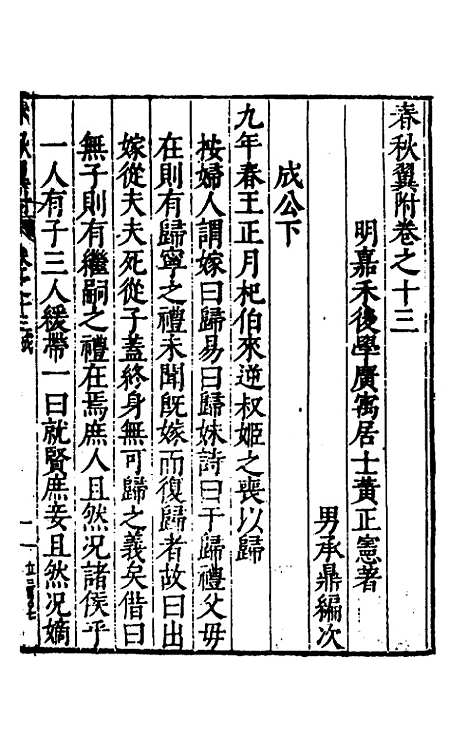 春秋翼附卷之十三
明嘉禾後學廣寓居士黃正憲著
男承鼎編次
成公下
九年春王正月杞伯來逆叔姬之喪以歸
按婦人謂嫁曰歸易曰歸妹詩曰于歸禮父母
在則有歸寧之禮未聞既嫁而復歸者故曰出
嫁從夫夫死從子蓋終身無可歸之義矣借曰
無子則有繼嗣之禮在焉庶人且然況諸侯乎
一人有子三人緩帶一曰就賢庶妾且然況嫡